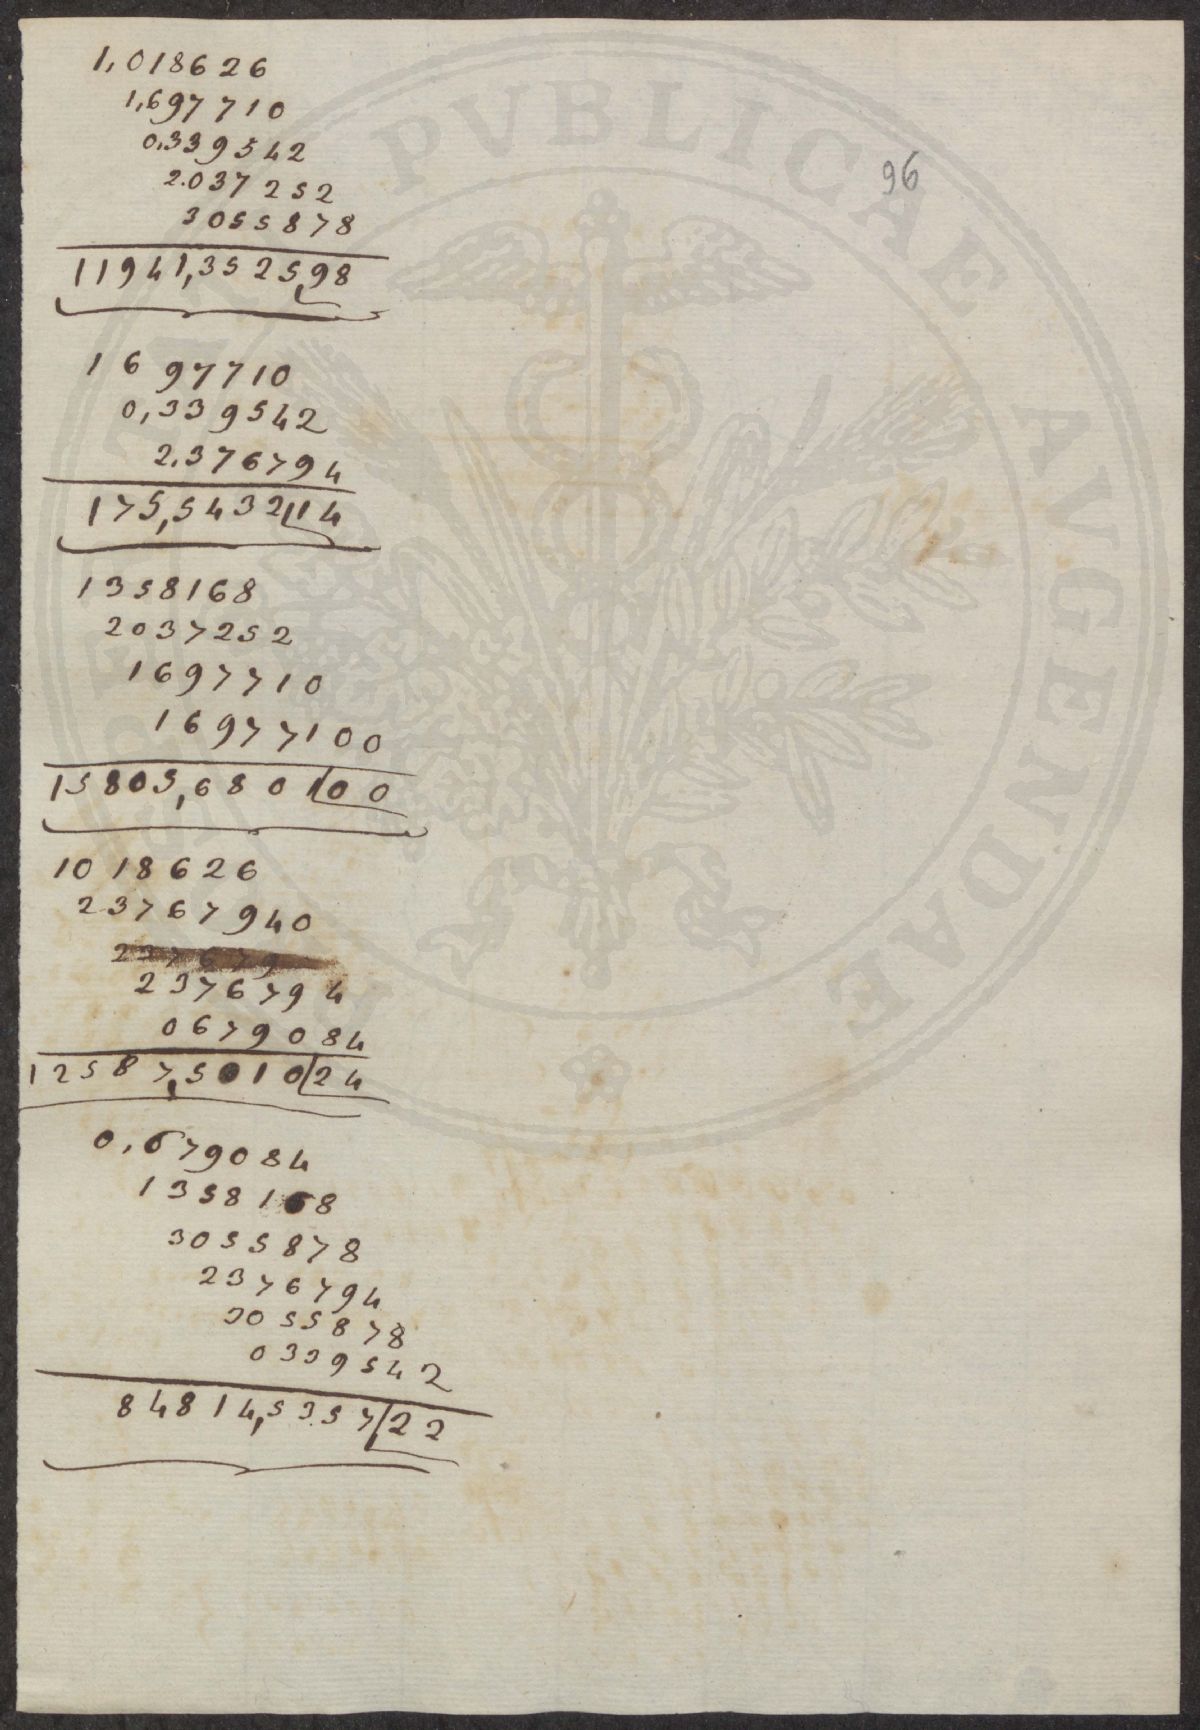 96
1,018626
1,697710
0,339542
2.037252
3055878
11941,352598
1697710
0,339542
2.376794
175,543214
1358168
2037252
1697710
16977100
15805,680100
1018626
23767940
237679
2376794
0679084
12587,501024
0,679084
1358168
3055878
2376794
3055878
0339542
84814,535722
PVBLICAE AVGENDAE